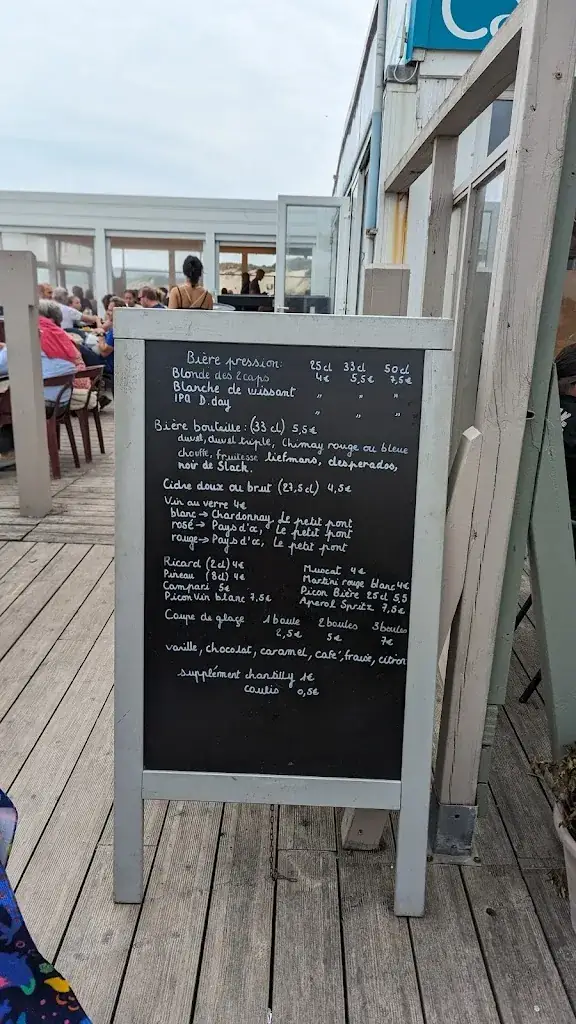 Ca
Bière pression: 25cl 33cl 50cl
Blonde des 2 caps 4€ 5,5€ 7,5€
Blanche de wissant " " "
IPA D.day " " "
Bière bouteille: (33 cl) 5,5€
duvel, duvel triple, Chimay rouge ou bleue
chouffe, fruitesse liefmans, desperados,
noir de Slack.
Cidre doux ou brut (27,5cl) 4,5€
Vin au verre 4€
blanc → Chardonnay Le petit pont
rosé → Pays d'oc, Le petit pont
rouge → Pays d'oc, Le petit pont
Ricard (2cl) 4€ Muscat 4€
Pineau (8cl) 4€ Martini rouge blanc 4€
Campari 5€ Picon Bière 25cl 5,5
Picon Vin blanc 7,5€ Aperol Spritz 7,5€
Coupe de glace 1 boule 2 boules 3 boules
2,5€ 5€ 7€
vanille, chocolat, caramel, café, fraise, citron
supplément chantilly 1€
coulis 0,5€